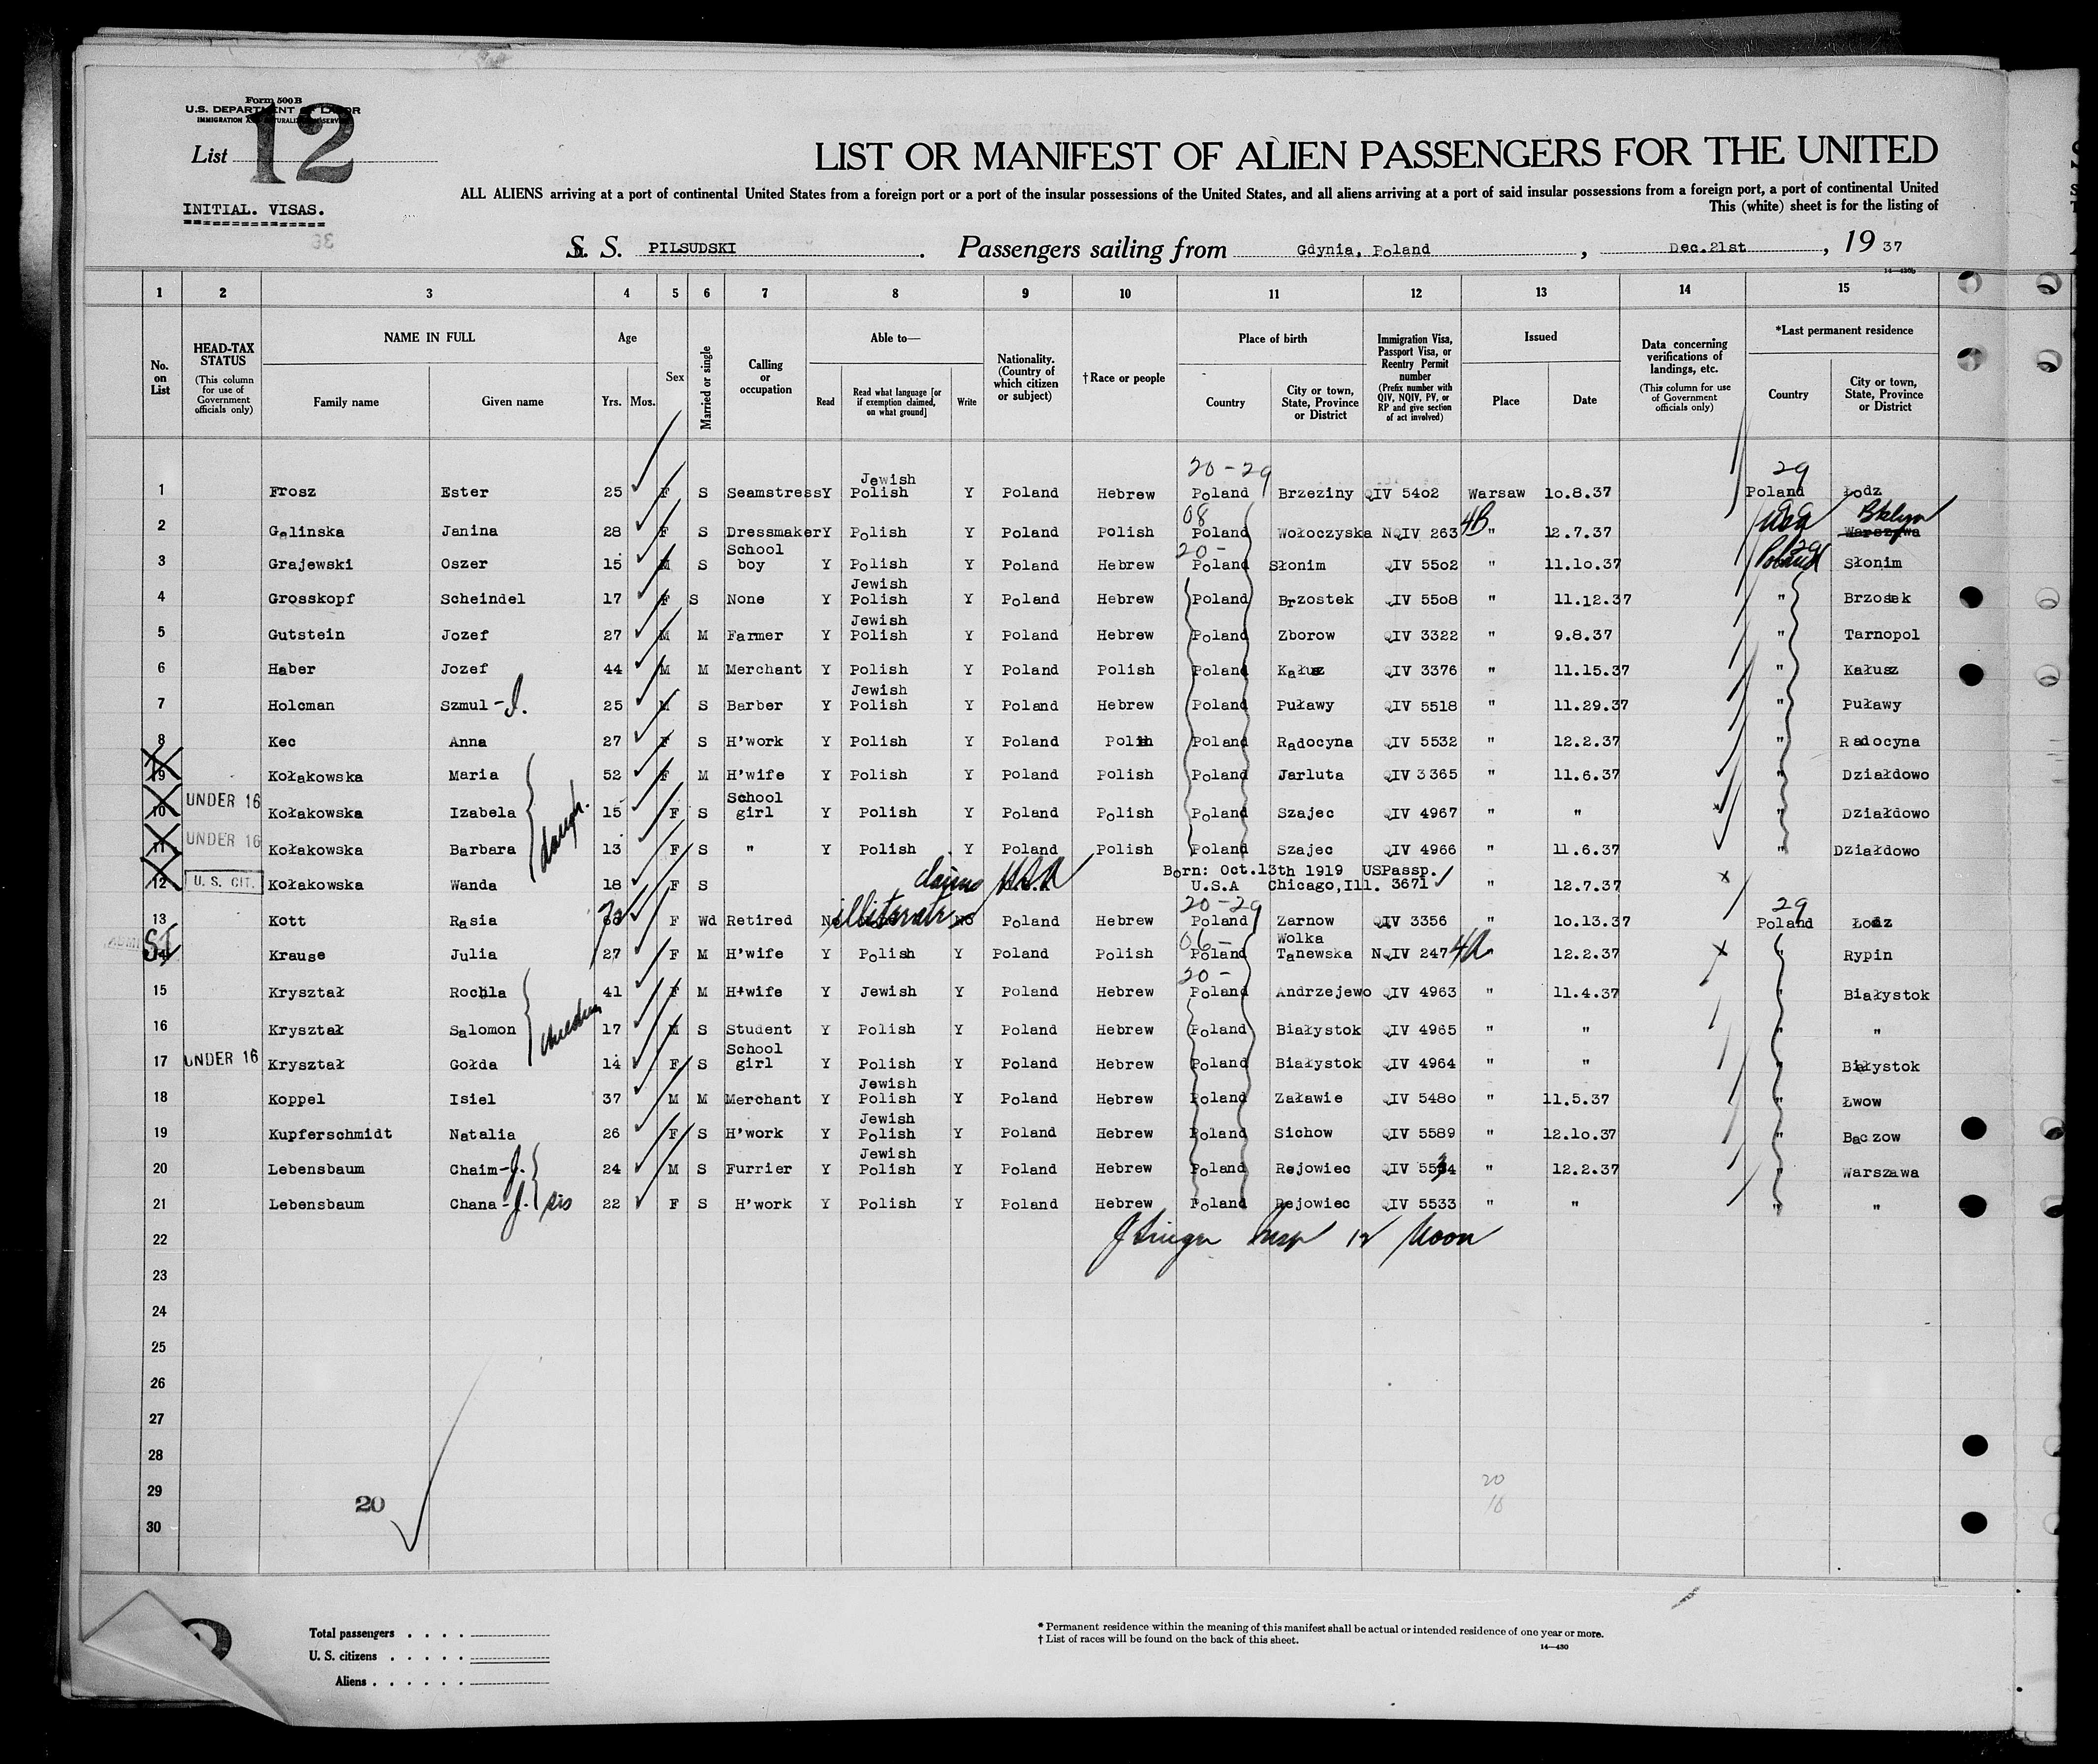 Form 500 B
U.S. DEPARTMENT OF LABOR
IMMIGRATION AND NATURALIZATION SERVICE
List 12
INITIAL. VISAS.
LIST OR MANIFEST OF ALIEN PASSENGERS FOR THE UNITED
ALL ALIENS arriving at a port of continental United States from a foreign port or a port of the insular possessions of the United States, and all aliens arriving at a port of said insular possessions from a foreign port, a port of continental United
This (white) sheet is for the listing of
S. S. PILSUDSKI. Passengers sailing from Gdynia, Poland, Dec.21st, 19 37
14—430b
1 2 3 4 5 6 7 8 9 10 11 12 13 14 15
No. on List
HEAD-TAX STATUS (This column for use of Government officials only)
NAME IN FULL Family name Given name
Age Yrs. Mos.
Sex
Married or single
Calling or occupation
Able to— Read Read what language [or if exemption claimed, on what ground] Write
Nationality. (Country of which citizen or subject)
†Race or people
Place of birth Country City or town, State, Province or District
Immigration Visa, Passport Visa, or Reentry Permit number (Prefix number with QIV, NQIV, PV, or RP and give section of act involved)
Issued Place Date
Data concerning verifications of landings, etc. (This column for use of Government officials only)
*Last permanent residence Country City or town, State, Province or District
20-29 29
1 Frosz Ester 25 F S Seamstress Y Jewish Polish Y Poland Hebrew Poland Brzeziny QIV 5402 Warsaw 10.8.37 Poland Łodz
08
2 Galinska Janina 28 F S Dressmaker Y Polish Y Poland Polish Poland Wołoczyska NQIV 263 4B " 12.7.37 USA Bklyn Warszawa
20- 29
3 Grajewski Oszer 15 M S School boy Y Polish Y Poland Hebrew Poland Słonim QIV 5502 " 11.10.37 Poland Słonim
4 Grosskopf Scheindel 17 F S None Y Jewish Polish Y Poland Hebrew Poland Brzostek QIV 5508 " 11.12.37 " Brzosek
5 Gutstein Jozef 27 M M Farmer Y Jewish Polish Y Poland Hebrew Poland Zborow QIV 3322 " 9.8.37 " Tarnopol
6 Haber Jozef 44 M M Merchant Y Polish Y Poland Polish Poland Kałusz QIV 3376 " 11.15.37 " Kałusz
7 Holcman Szmul -J. 25 M S Barber Y Jewish Polish Y Poland Hebrew Poland Puławy QIV 5518 " 11.29.37 " Puławy
8 Kec Anna 27 F S H'work Y Polish Y Poland Polish Poland Radocyna QIV 5532 " 12.2.37 " Radocyna
9 Kołakowska Maria 52 F M H'wife Y Polish Y Poland Polish Poland Jarluta QIV 3365 " 11.6.37 " Działdowo
10 UNDER 16 Kołakowska Izabela daugh. 15 F S School girl Y Polish Y Poland Polish Poland Szajec QIV 4967 " " " Działdowo
11 UNDER 16 Kołakowska Barbara 13 F S " Y Polish Y Poland Polish Poland Szajec QIV 4966 " 11.6.37 " Działdowo
12 U. S. CIT. Kołakowska Wanda 18 F S claims U.S.A Born: Oct.13th 1919 U.S.A Chicago,Ill. USPassp. 3671 " 12.7.37
20-29 29
13 Kott Rasia F Wd Retired No illiterate No Poland Hebrew Poland Zarnow QIV 3356 " 10.13.37 Poland Łodz
06-
14 SI Krause Julia 27 F M H'wife Y Polish Y Poland Polish Poland Wolka Tanewska NQIV 247 4A " 12.2.37 " Rypin
20-
15 Kryształ Rochla 41 F M H'wife Y Jewish Y Poland Hebrew Poland Andrzejewo QIV 4963 " 11.4.37 " Białystok
16 Kryształ Salomon children 17 M S Student Y Polish Y Poland Hebrew Poland Białystok QIV 4965 " " " "
17 UNDER 16 Kryształ Gołda 14 F S School girl Y Polish Y Poland Hebrew Poland Białystok QIV 4964 " " " Białystok
18 Koppel Isiel 37 M M Merchant Y Jewish Polish Y Poland Hebrew Poland Załawie QIV 5480 " 11.5.37 " Łwow
19 Kupferschmidt Natalia 26 F S H'work Y Jewish Polish Y Poland Hebrew Poland Sichow QIV 5589 " 12.10.37 " Baczow
20 Lebensbaum Chaim -J. 24 M S Furrier Y Jewish Polish Y Poland Hebrew Poland Rejowiec QIV 5534 " 12.2.37 " Warszawa
21 Lebensbaum Chana -J. sis 22 F S H'work Y Polish Y Poland Hebrew Poland Rejowiec QIV 5533 " " " "
22 Insp 12 Noon
23
24
25
26
27
28
29 20
20
30
Total passengers
U. S. citizens
Aliens
* Permanent residence within the meaning of this manifest shall be actual or intended residence of one year or more.
† List of races will be found on the back of this sheet.
14—430